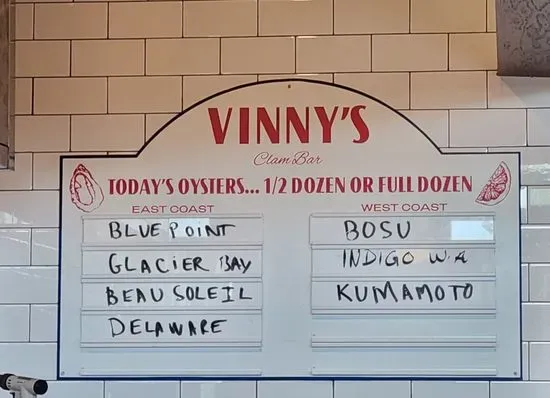 VINNY'S
Clam Bar
TODAY'S OYSTERS... 1/2 DOZEN OR FULL DOZEN
EAST COAST
BLUE POINT
GLACIER BAY
BEAU SOLEIL
DELAWARE
WEST COAST
BOSU
INDIGO W.A
KUMAMOTO